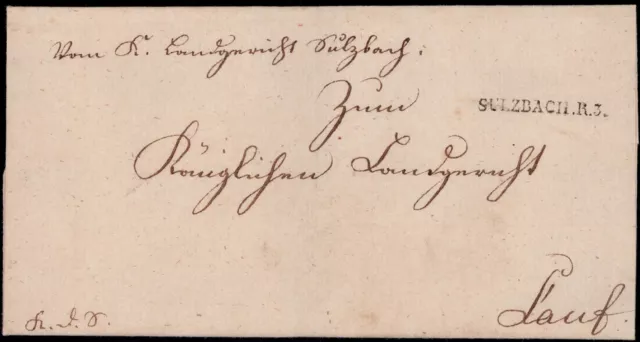 Vom K. Landgericht Sulzbach:
Zum
SULZBACH.R.3.
Königlichen Landgericht
Lauf.
K. D. S.